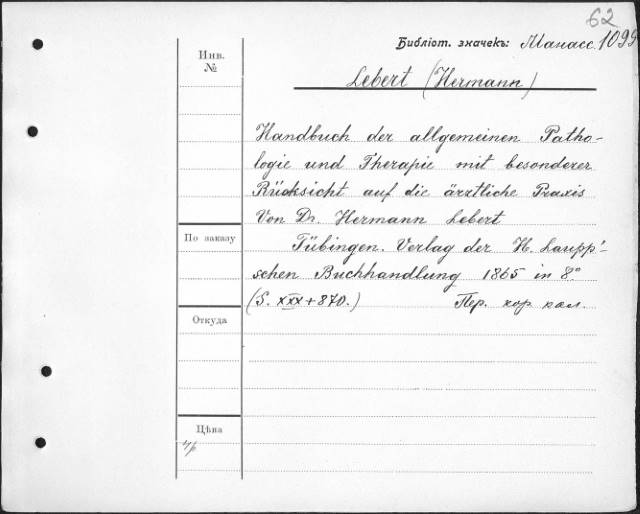 62
Библіот. значекъ: Манасс. 1099
Инв.
№
Lebert (Hermann)
Handbuch der allgemeinen Patho-
logie und Therapie mit besonderer
Rücksicht auf die ärztliche Praxis
Von Dr. Hermann Lebert
По заказу
Tübingen. Verlag der H. Laupp'-
schen Buchhandlung 1865 in 8.°
(S. XXX+870.) Пер. кор. кол.
Откуда
Цѣна